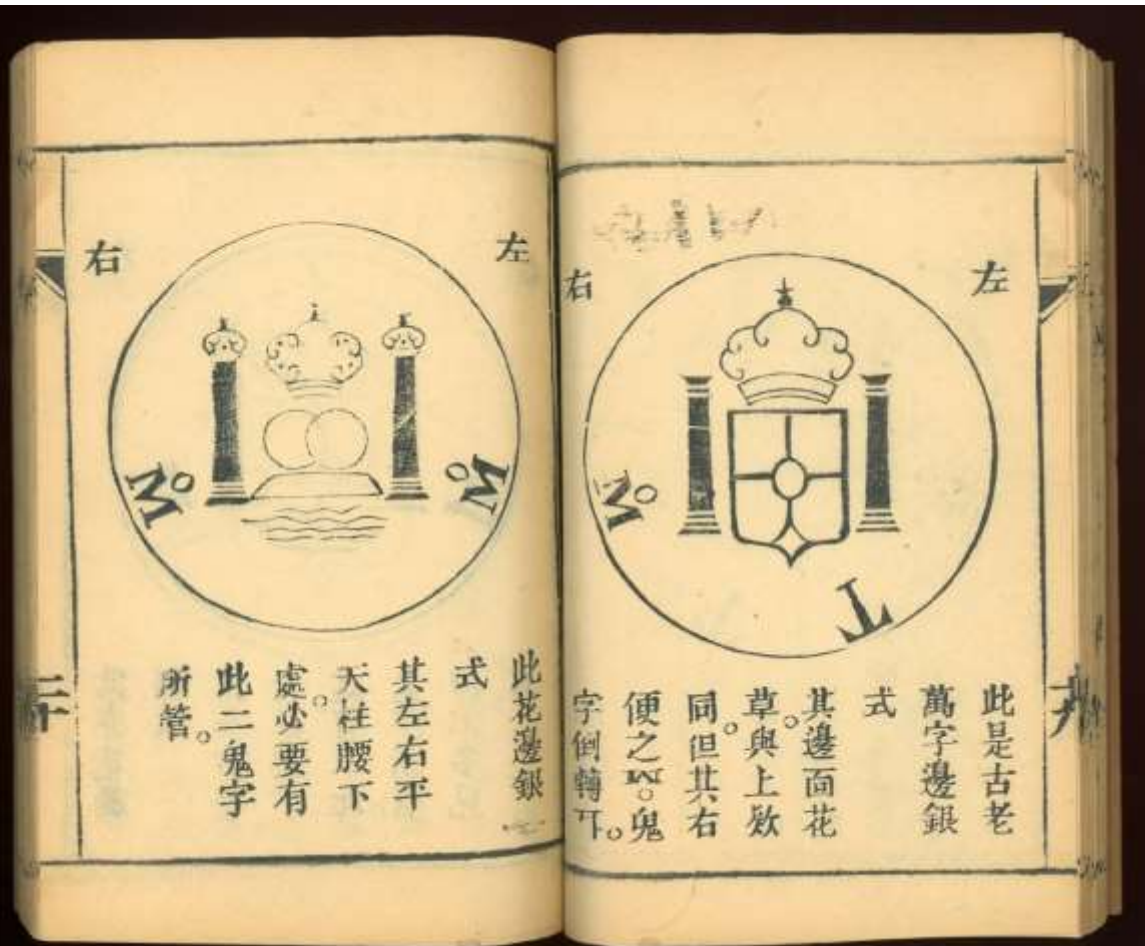 左
右
M°
T
此是古老
萬字邊銀
式
其邊面花
草。與上欵
同。但其右
便之M°鬼
字倒轉耳。
左
右
M°
M°
此花邊銀
式
其左右平
天柱腰下
處。必要有
此二鬼字
所管。